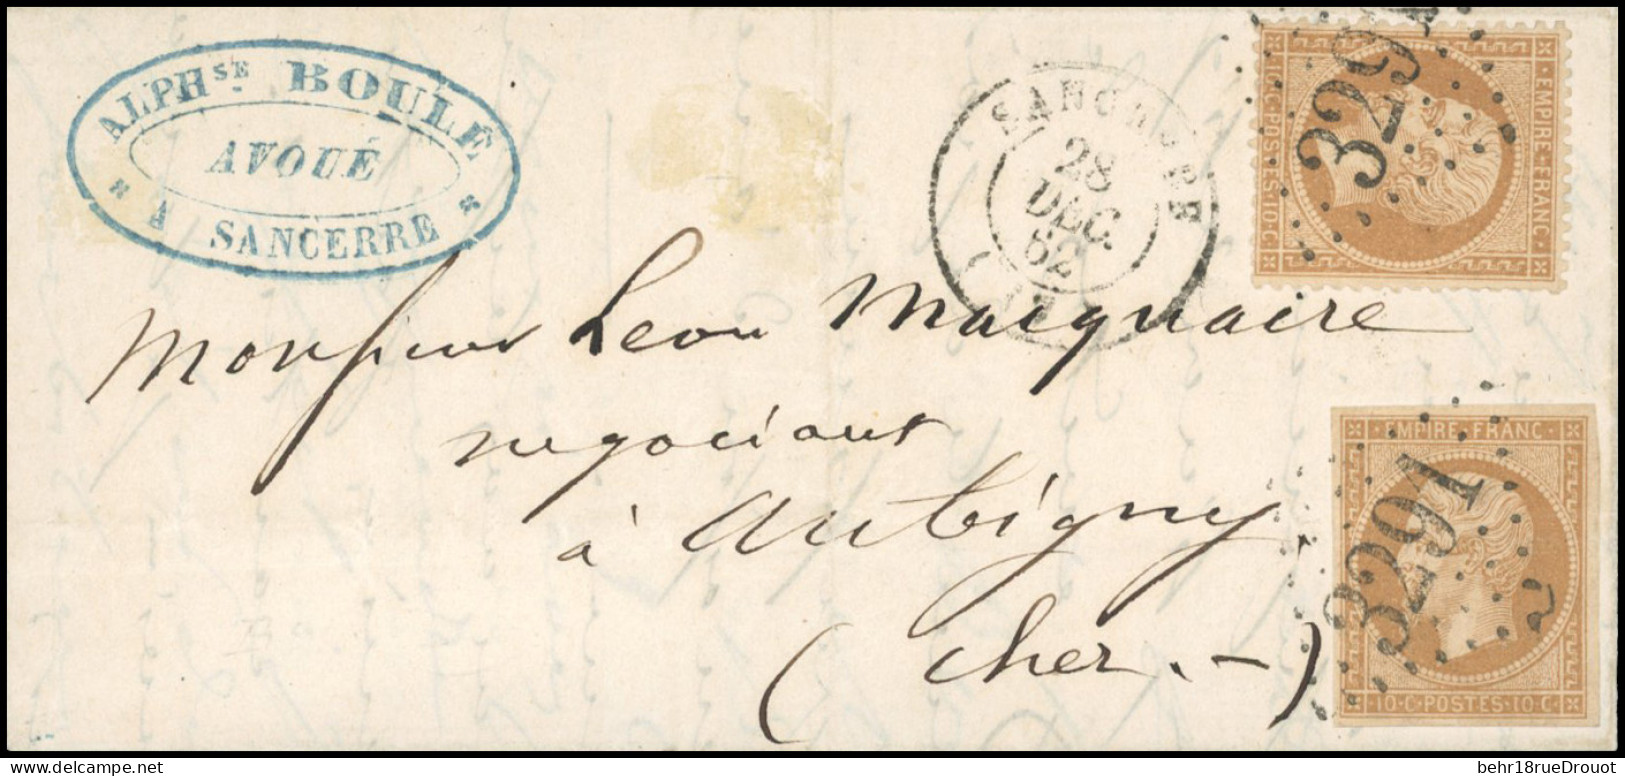 ALPHSE BOULÉ
AVOUÉ
A SANCERRE
SANCERRE
28
DEC.
62
(17)
EMPIRE FRANC
10·C·POSTES·10·C
329
Monsieur Leon Macquaire
negociant
à Aubigny
(Cher.-)
EMPIRE·FRANC·
10·C·POSTES·10·C·
3291
delcampe.net
behr18rueDrouot